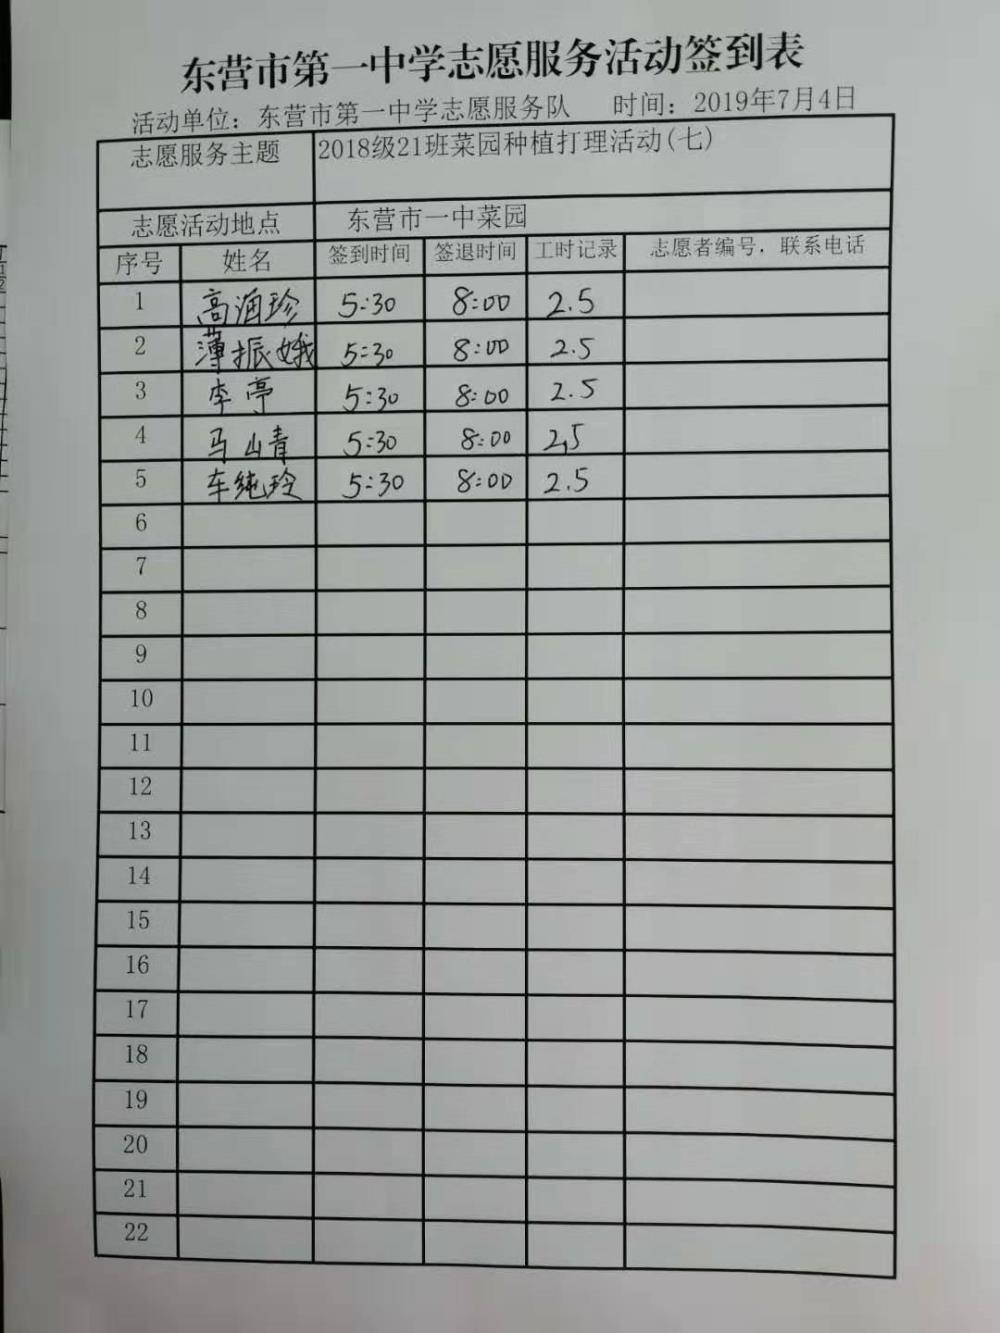 东营市第一中学志愿服务活动签到表
活动单位：东营市第一中学志愿服务队 时间：2019年7月4日
志愿服务主题 2018级21班菜园种植打理活动(七)
志愿活动地点 东营市一中菜园
序号 姓名 签到时间 签退时间 工时记录 志愿者编号，联系电话
1 高润珍 5:30 8:00 2.5
2 薄振娥 5:30 8:00 2.5
3 李亭 5:30 8:00 2.5
4 马山青 5:30 8:00 2.5
5 车纯玲 5:30 8:00 2.5
6
7
8
9
10
11
12
13
14
15
16
17
18
19
20
21
22